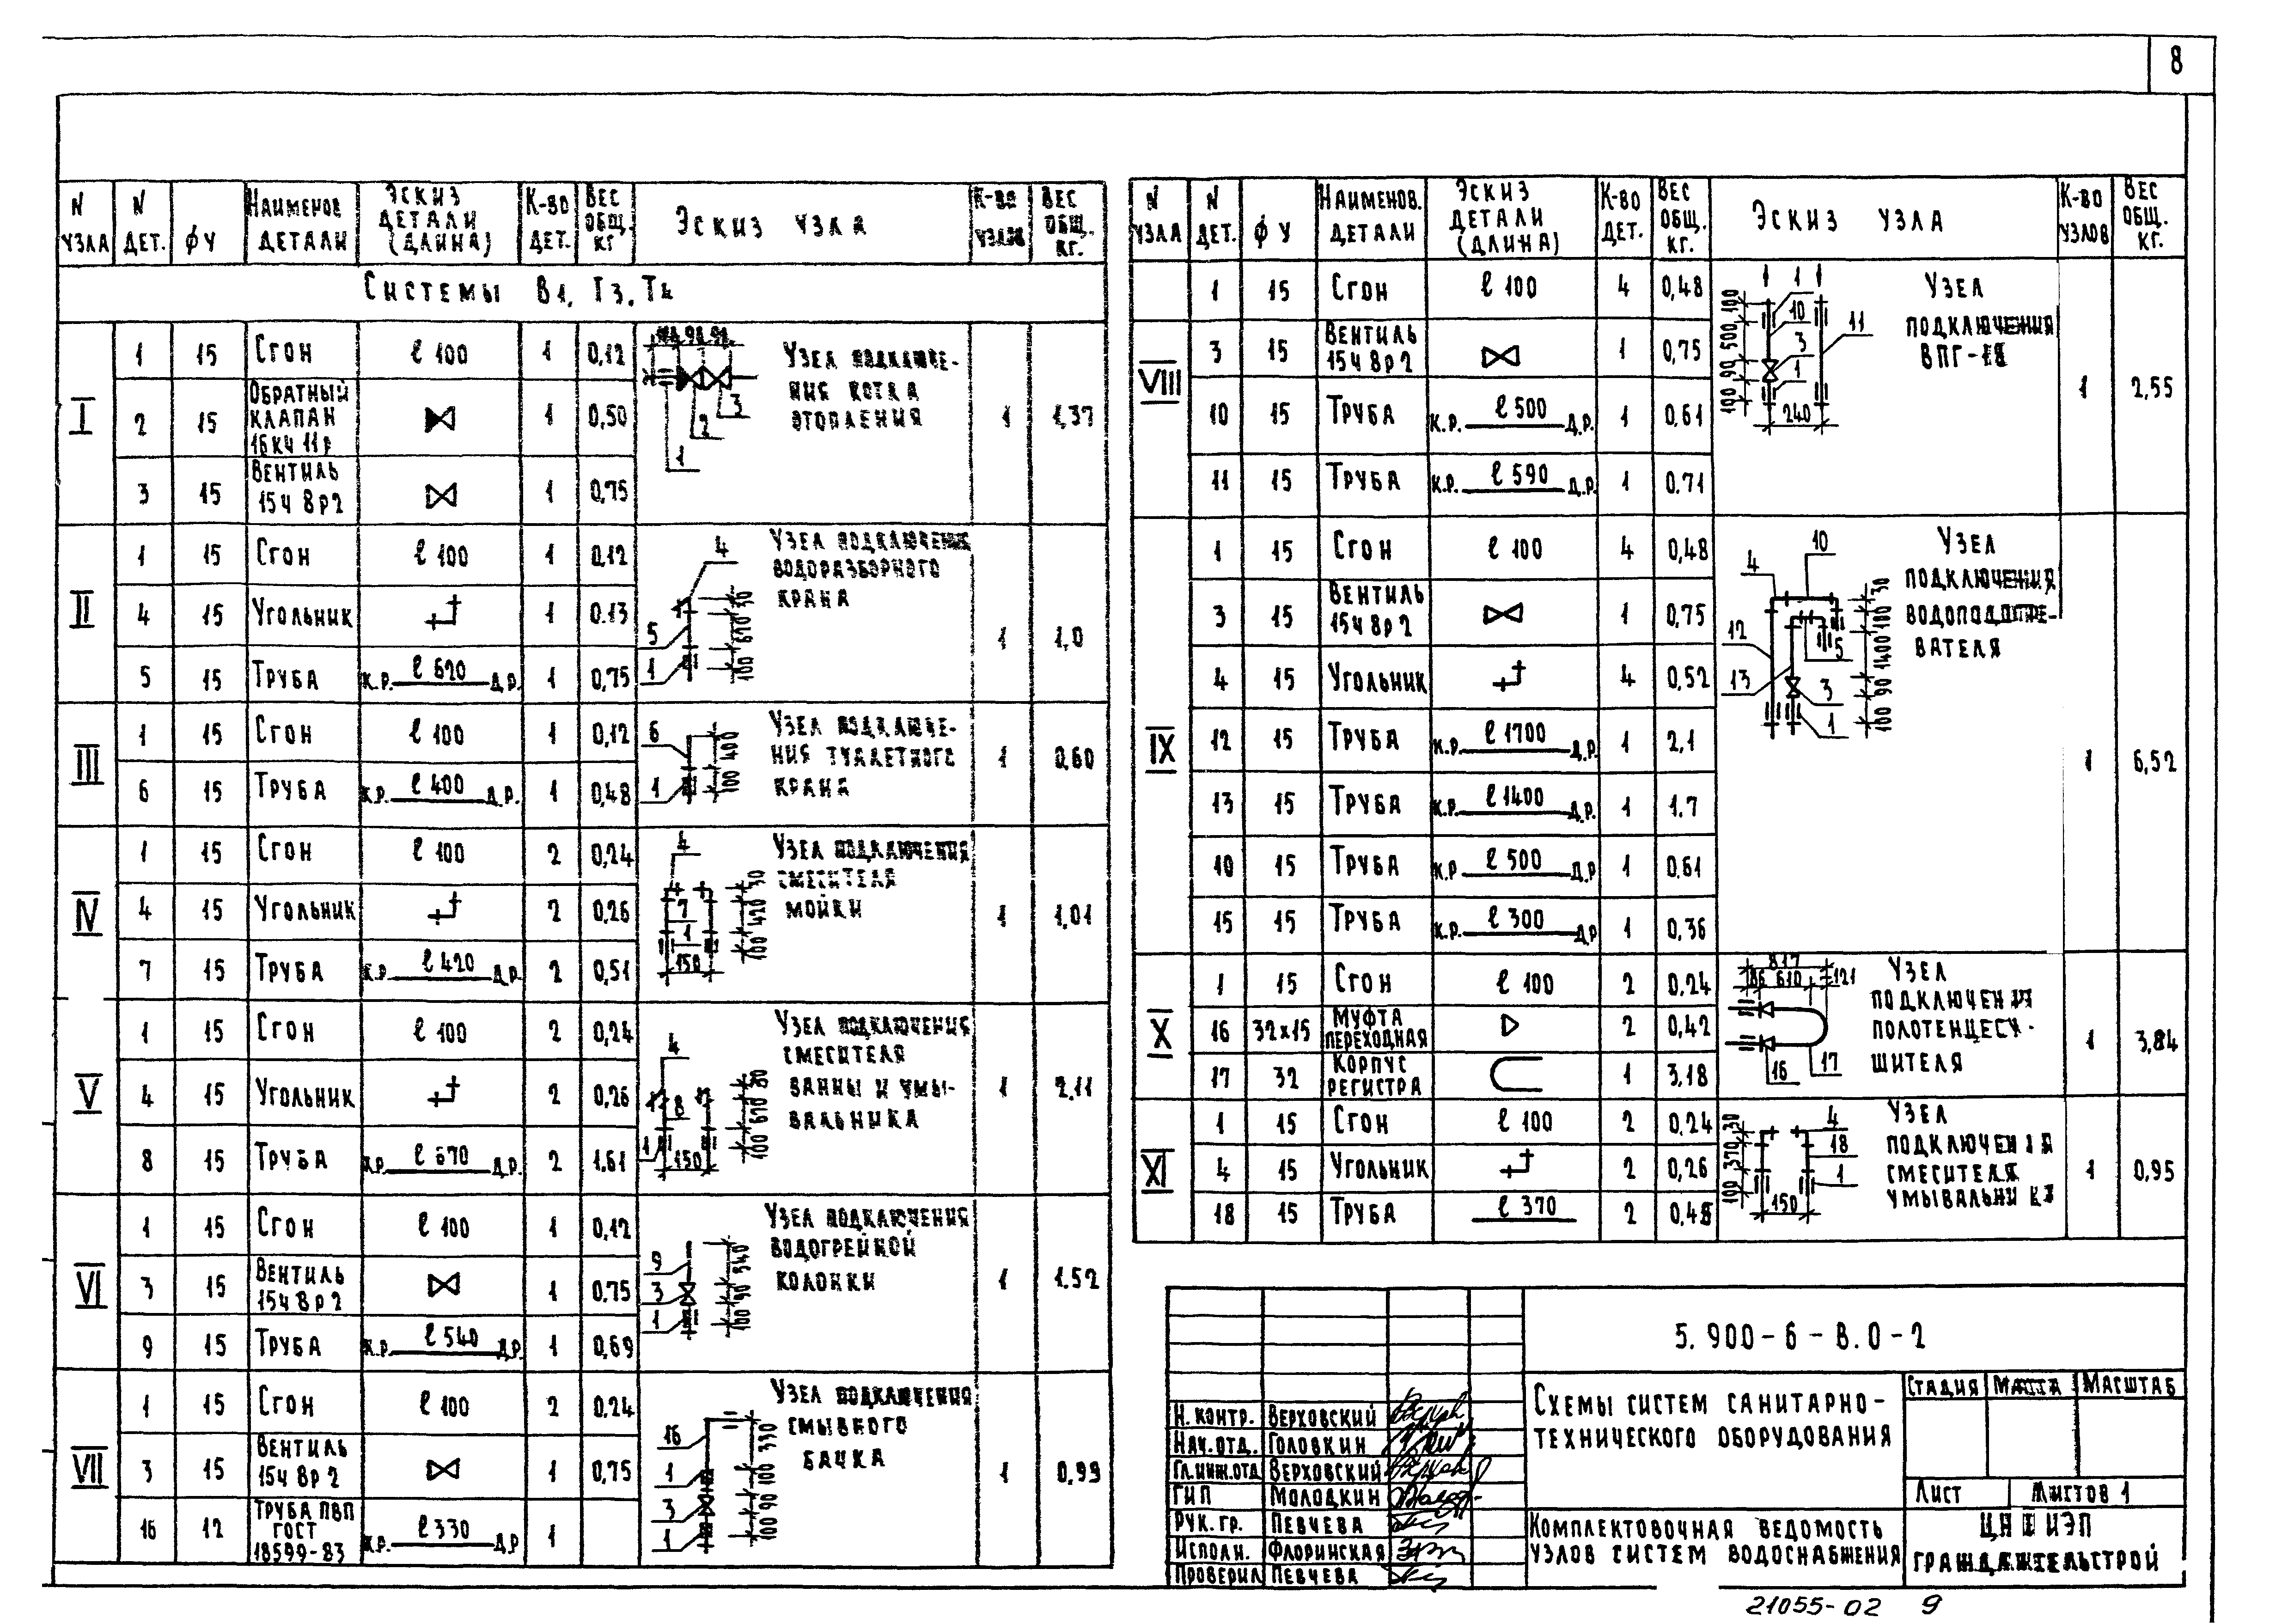 8
N УЗЛА | N ДЕТ. | ФУ | НАИМЕНОВ ДЕТАЛИ | ЭСКИЗ ДЕТАЛИ (ДЛИНА) | К-ВО ДЕТ. | ВЕС ОБЩ. КГ | ЭСКИЗ УЗЛА | К-ВО УЗЛОВ | ВЕС ОБЩ. КГ.
СИСТЕМЫ В1, Т3, Т4
I
1 15 СГОН ℓ 100 1 0,12
2 15 ОБРАТНЫЙ КЛАПАН 16КЧ 11Р 1 0,50
3 15 ВЕНТИЛЬ 15Ч 8Р2 1 0,75
3
2
1
УЗЕЛ ПОДКЛЮЧЕ-
НИЯ КОТЛА
ОТОПЛЕНИЯ
1 1,37
II
1 15 СГОН ℓ 100 1 0.12
4 15 УГОЛЬНИК 1 0.13
5 15 ТРУБА К.Р. ℓ 620 Д.Р. 1 0,75
4
5
1
100 620 30
УЗЕЛ ПОДКЛЮЧЕНИЯ
ВОДОРАЗБОРНОГО
КРАНА
1 1,0
III
1 15 СГОН ℓ 100 1 0,12
6 15 ТРУБА К.Р. ℓ 400 Д.Р. 1 0,48
6
1
100 400
УЗЕЛ ПОДКЛЮЧЕ-
НИЯ ТУАЛЕТНОГО
КРАНА
1 0,60
IV
1 15 СГОН ℓ 100 2 0,24
4 15 УГОЛЬНИК 2 0,26
7 15 ТРУБА К.Р. ℓ 420 Д.Р. 2 0,51
4
7
1
150
100 420 30
УЗЕЛ ПОДКЛЮЧЕНИЯ
СМЕСИТЕЛЯ
МОЙКИ
1 1,01
V
1 15 СГОН ℓ 100 2 0,24
4 15 УГОЛЬНИК 2 0,26
8 15 ТРУБА К.Р. ℓ 670 Д.Р. 2 1.61
4
8
1
150
100 670 30
УЗЕЛ ПОДКЛЮЧЕНИЯ
СМЕСИТЕЛЯ
ВАННЫ И УМЫ-
ВАЛЬНИКА
1 2,11
VI
1 15 СГОН ℓ 100 1 0,12
3 15 ВЕНТИЛЬ 15Ч 8Р2 1 0,75
9 15 ТРУБА К.Р. ℓ 540 Д.Р. 1 0,69
9
3
1
100 90
УЗЕЛ ПОДКЛЮЧЕНИЯ
ВОДОГРЕЙНОЙ
КОЛОНКИ
1 1.52
VII
1 15 СГОН ℓ 100 2 0.24
3 15 ВЕНТИЛЬ 15Ч 8Р2 1 0,75
16 12 ТРУБА ПВП ГОСТ 18599-83 К.Р. ℓ 330 Д.Р 1
16
1
3
1
100 90 100 330
УЗЕЛ ПОДКЛЮЧЕНИЯ
СМЫВНОГО
БАЧКА
1 0,99
N УЗЛА | N ДЕТ. | ФУ | НАИМЕНОВ. ДЕТАЛИ | ЭСКИЗ ДЕТАЛИ (ДЛИНА) | К-ВО ДЕТ. | ВЕС ОБЩ. КГ. | ЭСКИЗ УЗЛА | К-ВО УЗЛОВ | ВЕС ОБЩ. КГ.
VIII
1 15 СГОН ℓ 100 4 0,48
3 15 ВЕНТИЛЬ 15Ч 8Р2 1 0,75
10 15 ТРУБА К.Р. ℓ 500 Д.Р. 1 0,61
11 15 ТРУБА К.Р. ℓ 590 Д.Р. 1 0.71
1
10
3
1
11
240
100 90 500 100
УЗЕЛ
ПОДКЛЮЧЕНИЯ
ВПГ-18
1 2,55
IX
1 15 СГОН ℓ 100 4 0,48
3 15 ВЕНТИЛЬ 15Ч 8Р2 1 0,75
4 15 УГОЛЬНИК 4 0,52
12 15 ТРУБА К.Р. ℓ 1700 Д.Р. 1 2,1
13 15 ТРУБА К.Р. ℓ 1400 Д.Р. 1 1.7
10 15 ТРУБА К.Р ℓ 500 Д.Р 1 0,61
15 15 ТРУБА К.Р. ℓ 300 Д.Р 1 0,36
10
4
12
13
5
3
1
100 90 1400 100 30
УЗЕЛ
ПОДКЛЮЧЕНИЯ
ВОДОПОДОГРЕ-
ВАТЕЛЯ
1 6,52
X
1 15 СГОН ℓ 100 2 0,24
16 32×15 МУФТА ПЕРЕХОДНАЯ 2 0,42
17 32 КОРПУС РЕГИСТРА 1 3,18
817
86 610 121
16
17
УЗЕЛ
ПОДКЛЮЧЕНИЯ
ПОЛОТЕНЦЕСУ-
ШИТЕЛЯ
1 3,84
XI
1 15 СГОН ℓ 100 2 0,24
4 15 УГОЛЬНИК 2 0,26
18 15 ТРУБА ℓ 370 2 0.45
4
18
1
150
100 370 30
УЗЕЛ
ПОДКЛЮЧЕНИЯ
СМЕСИТЕЛЯ
УМЫВАЛЬНИКА
1 0,95
5.900-6-8.0-2
Н. КОНТР. ВЕРХОВСКИЙ
НАЧ. ОТД. ГОЛОВКИН
ГЛ.ИНЖ.ОТД ВЕРХОВСКИЙ
ГИП МОЛОДКИН
РУК. ГР. ПЕВЧЕВА
ИСПОЛН. ФЛОРИНСКАЯ
ПРОВЕРИЛ ПЕВЧЕВА
СХЕМЫ СИСТЕМ САНИТАРНО-
ТЕХНИЧЕСКОГО ОБОРУДОВАНИЯ
СТАДИЯ МАССА МАСШТАБ
ЛИСТ ЛИСТОВ 1
КОМПЛЕКТОВОЧНАЯ ВЕДОМОСТЬ
УЗЛОВ СИСТЕМ ВОДОСНАБЖЕНИЯ
ЦНИИЭП
ГРАЖДАНСЕЛЬСТРОЙ
21055-02 9